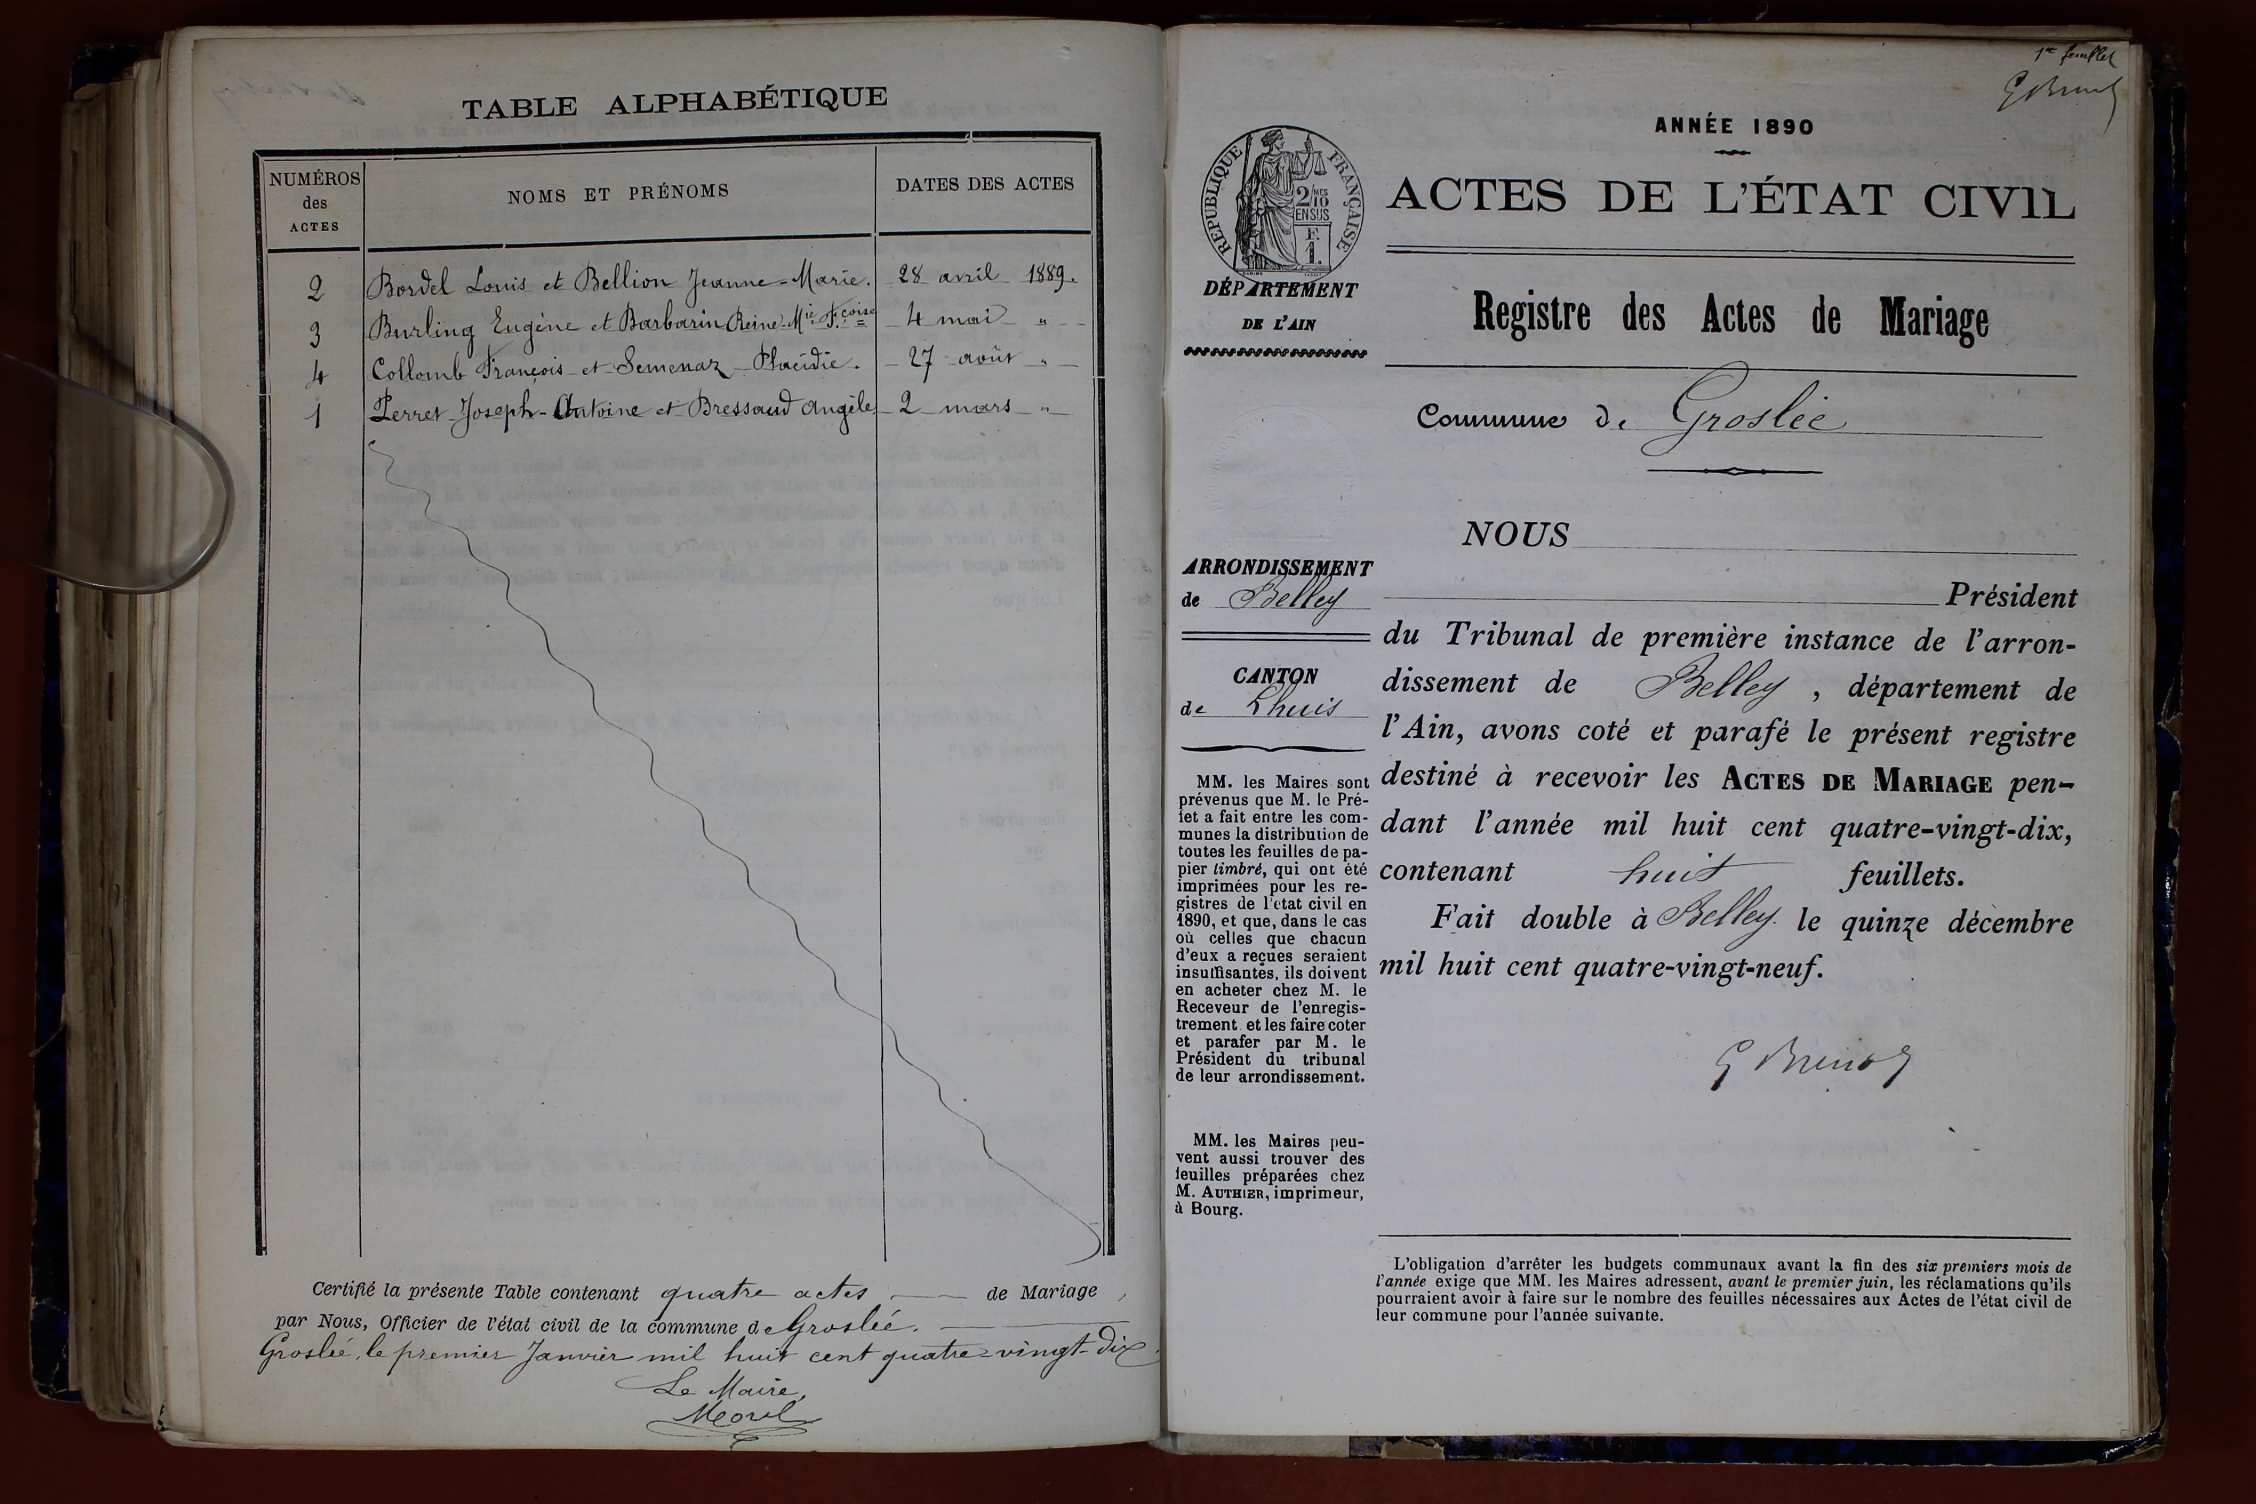 TABLE ALPHABÉTIQUE
NUMÉROS des ACTES
NOMS ET PRÉNOMS
DATES DES ACTES
2 Bordel Louis et Bellion Jeanne=Marie. 28 avril 1889.
3 Burling Eugène et Barbarin Reine-Mie Fçoise 4 mai "
4 Collomb François et Semenaz Placidie. 27 août "
1 Perret Joseph-Antoine et Bressaud Angèle 2 mars "
Certifié la présente Table contenant quatre actes de Mariage
par Nous, Officier de l'état civil de la commune de Groslée.
Groslée, le premier Janvier mil huit cent quatre-vingt-dix.
Le Maire,
Morel
1er feuillet
ANNÉE 1890
RÉPUBLIQUE FRANÇAISE
2/10 MES
EN SUS
F.
1.
ACTES DE L'ÉTAT CIVIL
DÉPARTEMENT
DE L'AIN
Registre des Actes de Mariage
Commune de Groslée
ARRONDISSEMENT
de Belley
CANTON
de Lhuis
MM. les Maires sont
prévenus que M. le Pré-
fet a fait entre les com-
munes la distribution de
toutes les feuilles de pa-
pier timbré, qui ont été
imprimées pour les re-
gistres de l'état civil en
1890, et que, dans le cas
où celles que chacun
d'eux a reçues seraient
insuffisantes, ils doivent
en acheter chez M. le
Receveur de l'enregis-
trement et les faire coter
et parafer par M. le
Président du tribunal
de leur arrondissement.
MM. les Maires peu-
vent aussi trouver des
feuilles préparées chez
M. AUTHIER, imprimeur,
à Bourg.
NOUS
Président
du Tribunal de première instance de l'arron-
dissement de Belley, département de
l'Ain, avons coté et parafé le présent registre
destiné à recevoir les ACTES DE MARIAGE pen-
dant l'année mil huit cent quatre-vingt-dix,
contenant huit feuillets.
Fait double à Belley. le quinze décembre
mil huit cent quatre-vingt-neuf.
L'obligation d'arrêter les budgets communaux avant la fin des six premiers mois de
l'année exige que MM. les Maires adressent, avant le premier juin, les réclamations qu'ils
pourraient avoir à faire sur le nombre des feuilles nécessaires aux Actes de l'état civil de
leur commune pour l'année suivante.